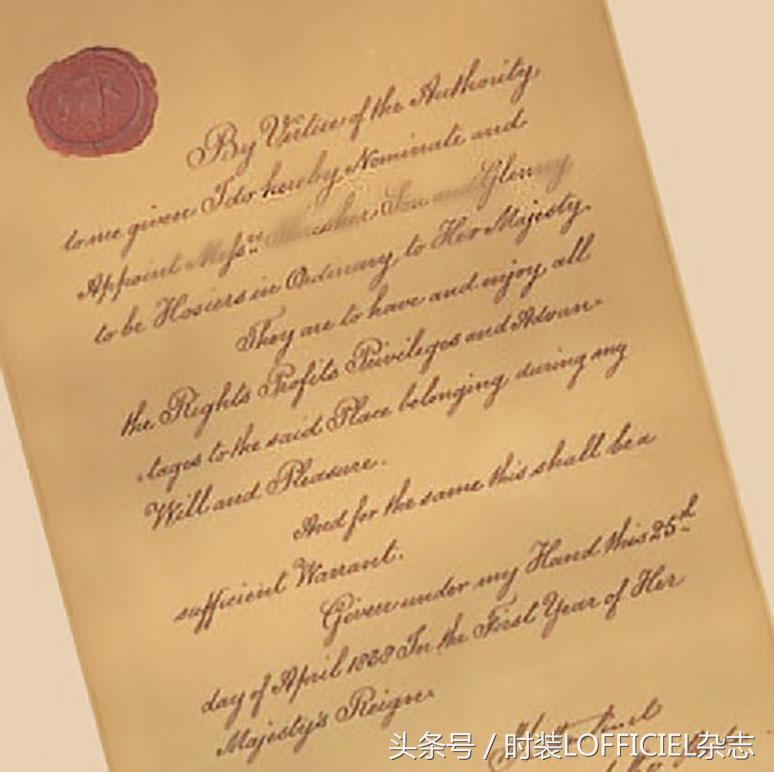 By Virtue of the Authority
to me given I do hereby Nominate and
Appoint Meſsrs Son and Glenny
to be Hosiers in Ordinary to Her Majesty.
They are to have and enjoy all
the Rights Profits Privileges and Advan-
-tages to the said Place belonging during my
Will and Pleasure.
And for the same this shall be a
sufficient Warrant.
Given under my Hand this 25d
day of April 1838 In the First Year of Her
Majesty's Reign.
头条号 / 时装LOFFICIEL杂志